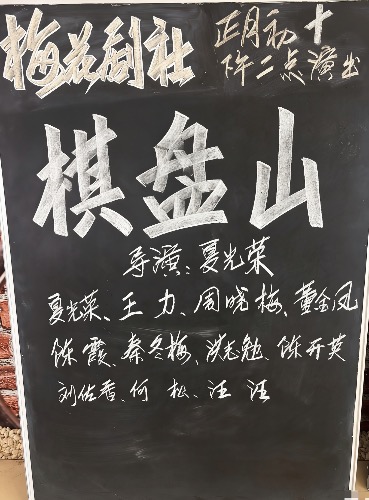 梅花剧社
正月初十
下午二点演出
棋盘山
导演:夏光荣
夏光荣、王力、周晓梅、董金凤
陈霞、秦冬梅、洪志勉、陈开英
刘佐香、何松、汪洭